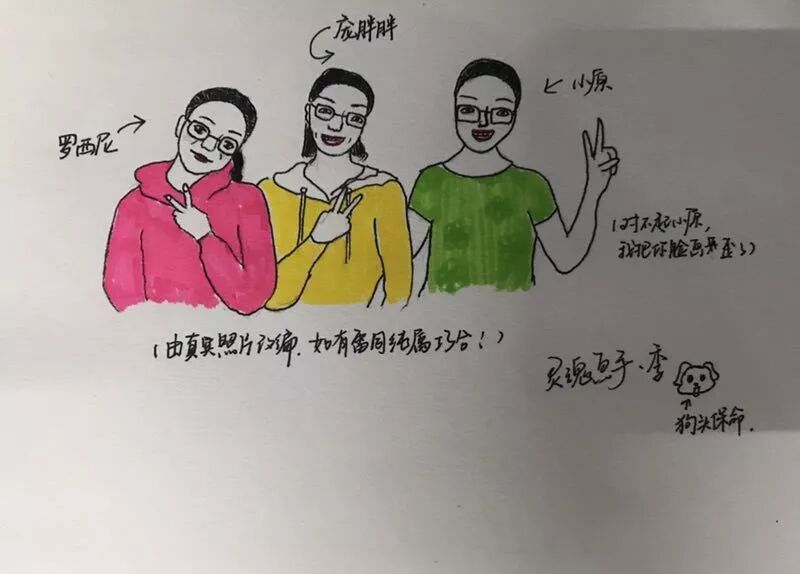 庞胖胖
罗西尼
小原
(对不起小原,
我把你脸画歪了)
(由真实照片改编.如有雷同纯属巧合!)
灵魂画手·李
狗头保命.